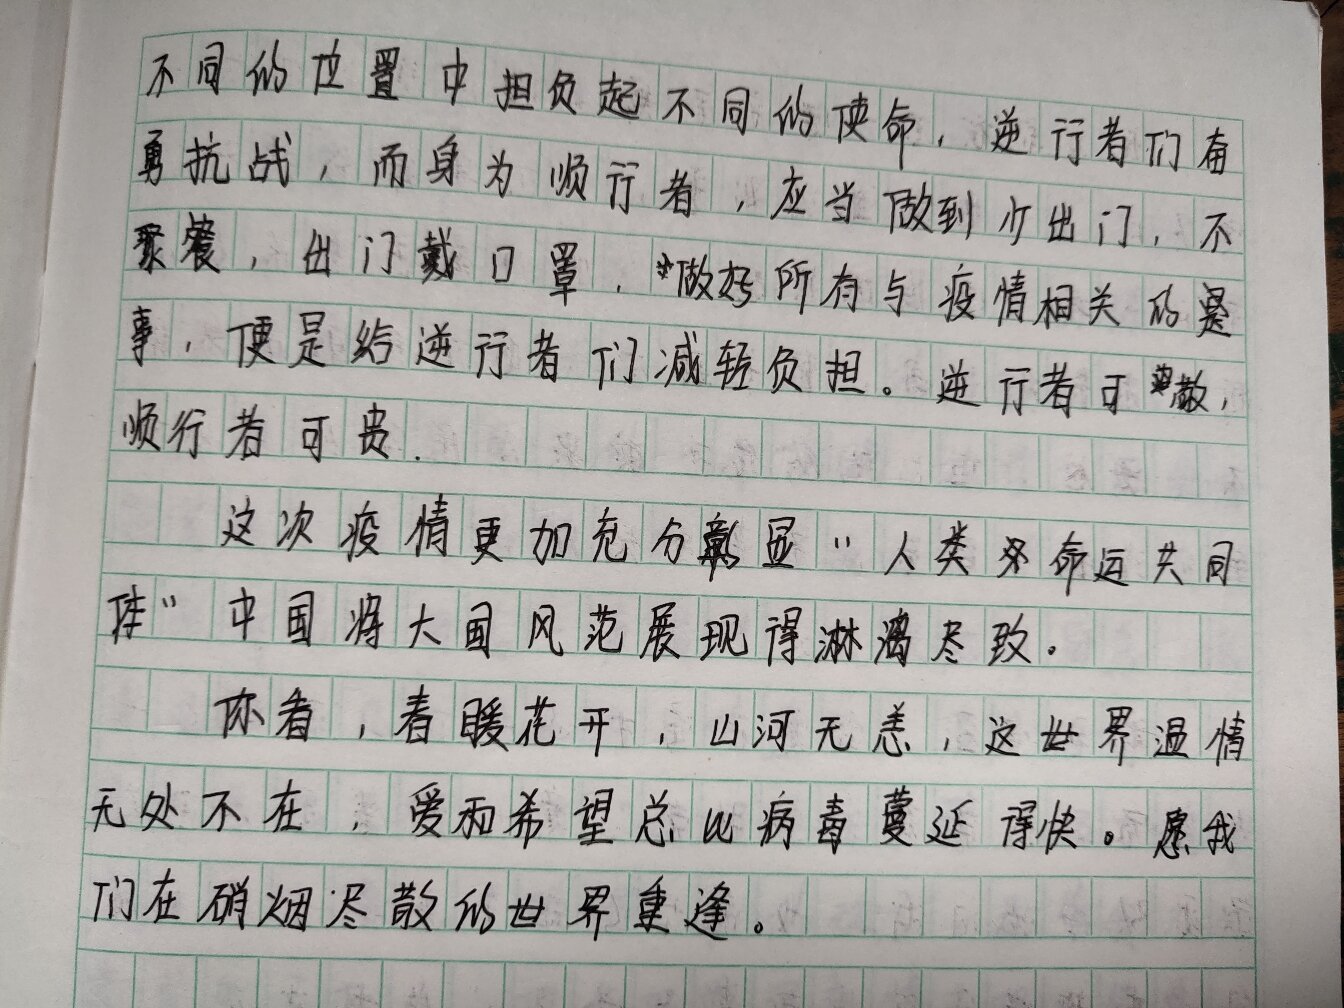 不同的位置中担负起不同的使命，逆行者们奋
勇抗战，而身为顺行者，应当做到少出门，不
聚餐，出门戴口罩，做好所有与疫情相关的
事，便是给逆行者们减轻负担。逆行者可敬，
顺行者可贵．
这次疫情更加充分彰显“人类命运共同
体”中国将大国风范展现得淋漓尽致。
你看，春暖花开，山河无恙，这世界温情
无处不在，爱和希望总比病毒蔓延得快。愿我
们在硝烟尽散的世界重逢。